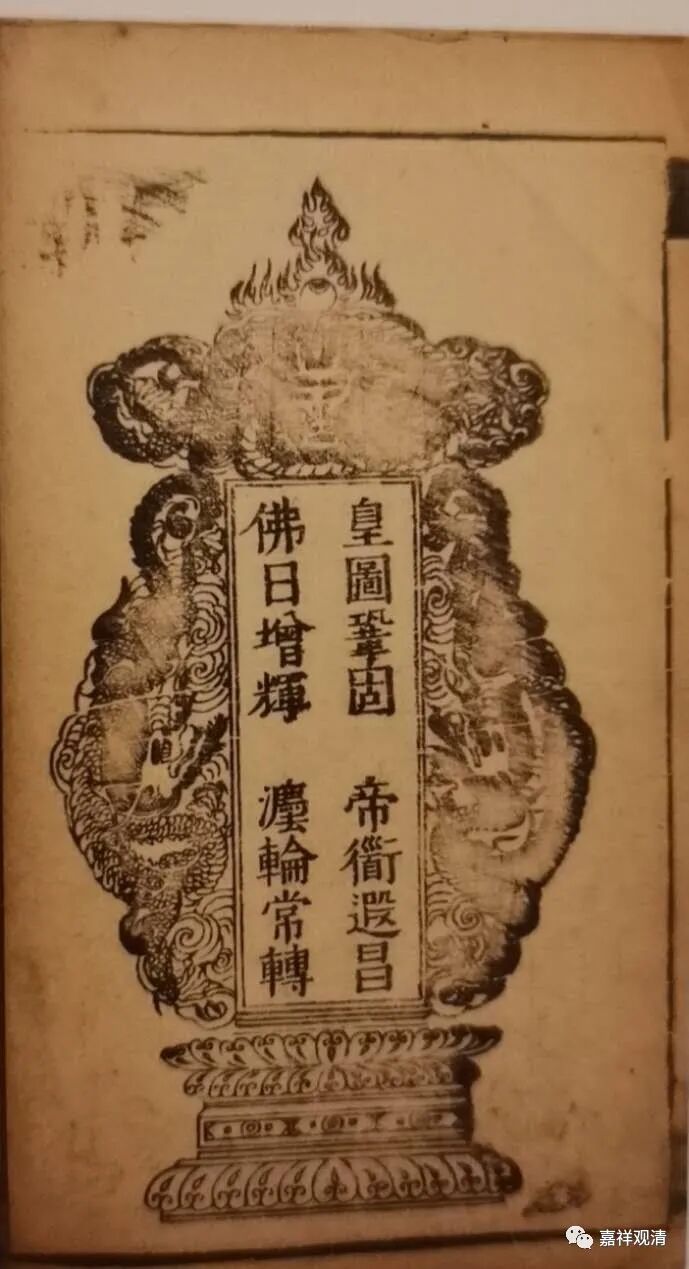 皇圖鞏固 帝衜遐昌
佛日增輝 灋輪常轉
嘉祥观清